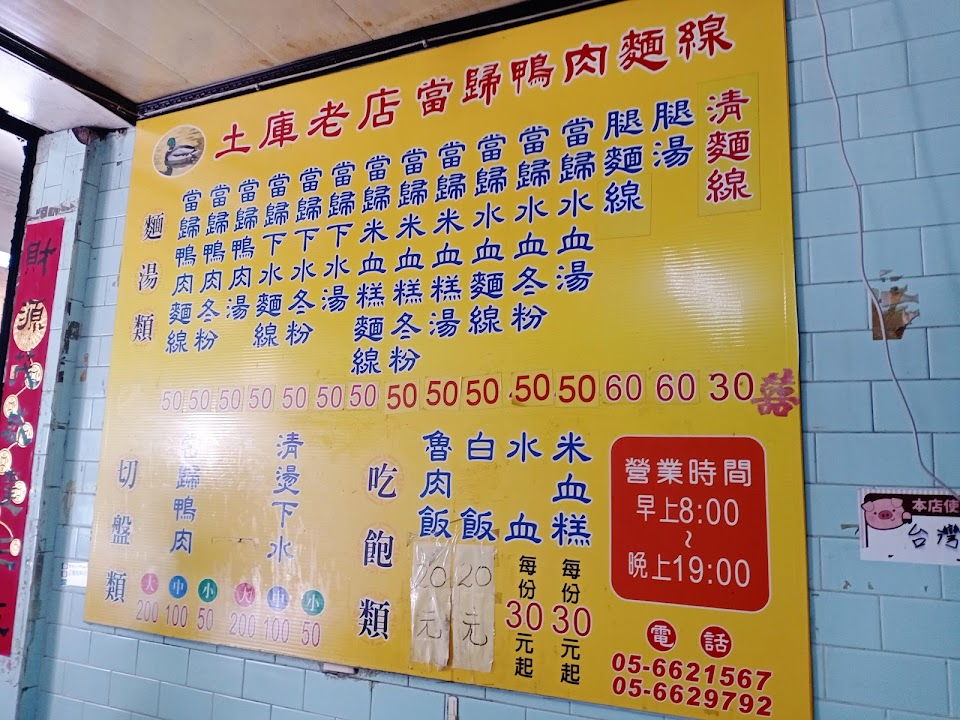 土庫老店當歸鴨肉麵線
麵湯類
當歸鴨肉麵線 50
當歸鴨肉冬粉 50
當歸鴨肉湯 50
當歸下水麵線 50
當歸下水冬粉 50
當歸下水湯 50
當歸米血糕麵線 50
當歸米血糕冬粉 50
當歸米血糕湯 50
當歸水血麵線 50
當歸水血冬粉 50
當歸水血湯 50
腿麵線 60
腿湯 60
清麵線 30
切盤類
當歸鴨肉
大 中 小
200 100 50
清燙下水
大 中 小
200 100 50
吃飽類
魯肉飯 20元
白飯 20元
水血 每份30元起
米血糕 每份30元起
營業時間
早上8:00
~
晚上19:00
電話
05-6621567
05-6629792
財源
本店使
台灣